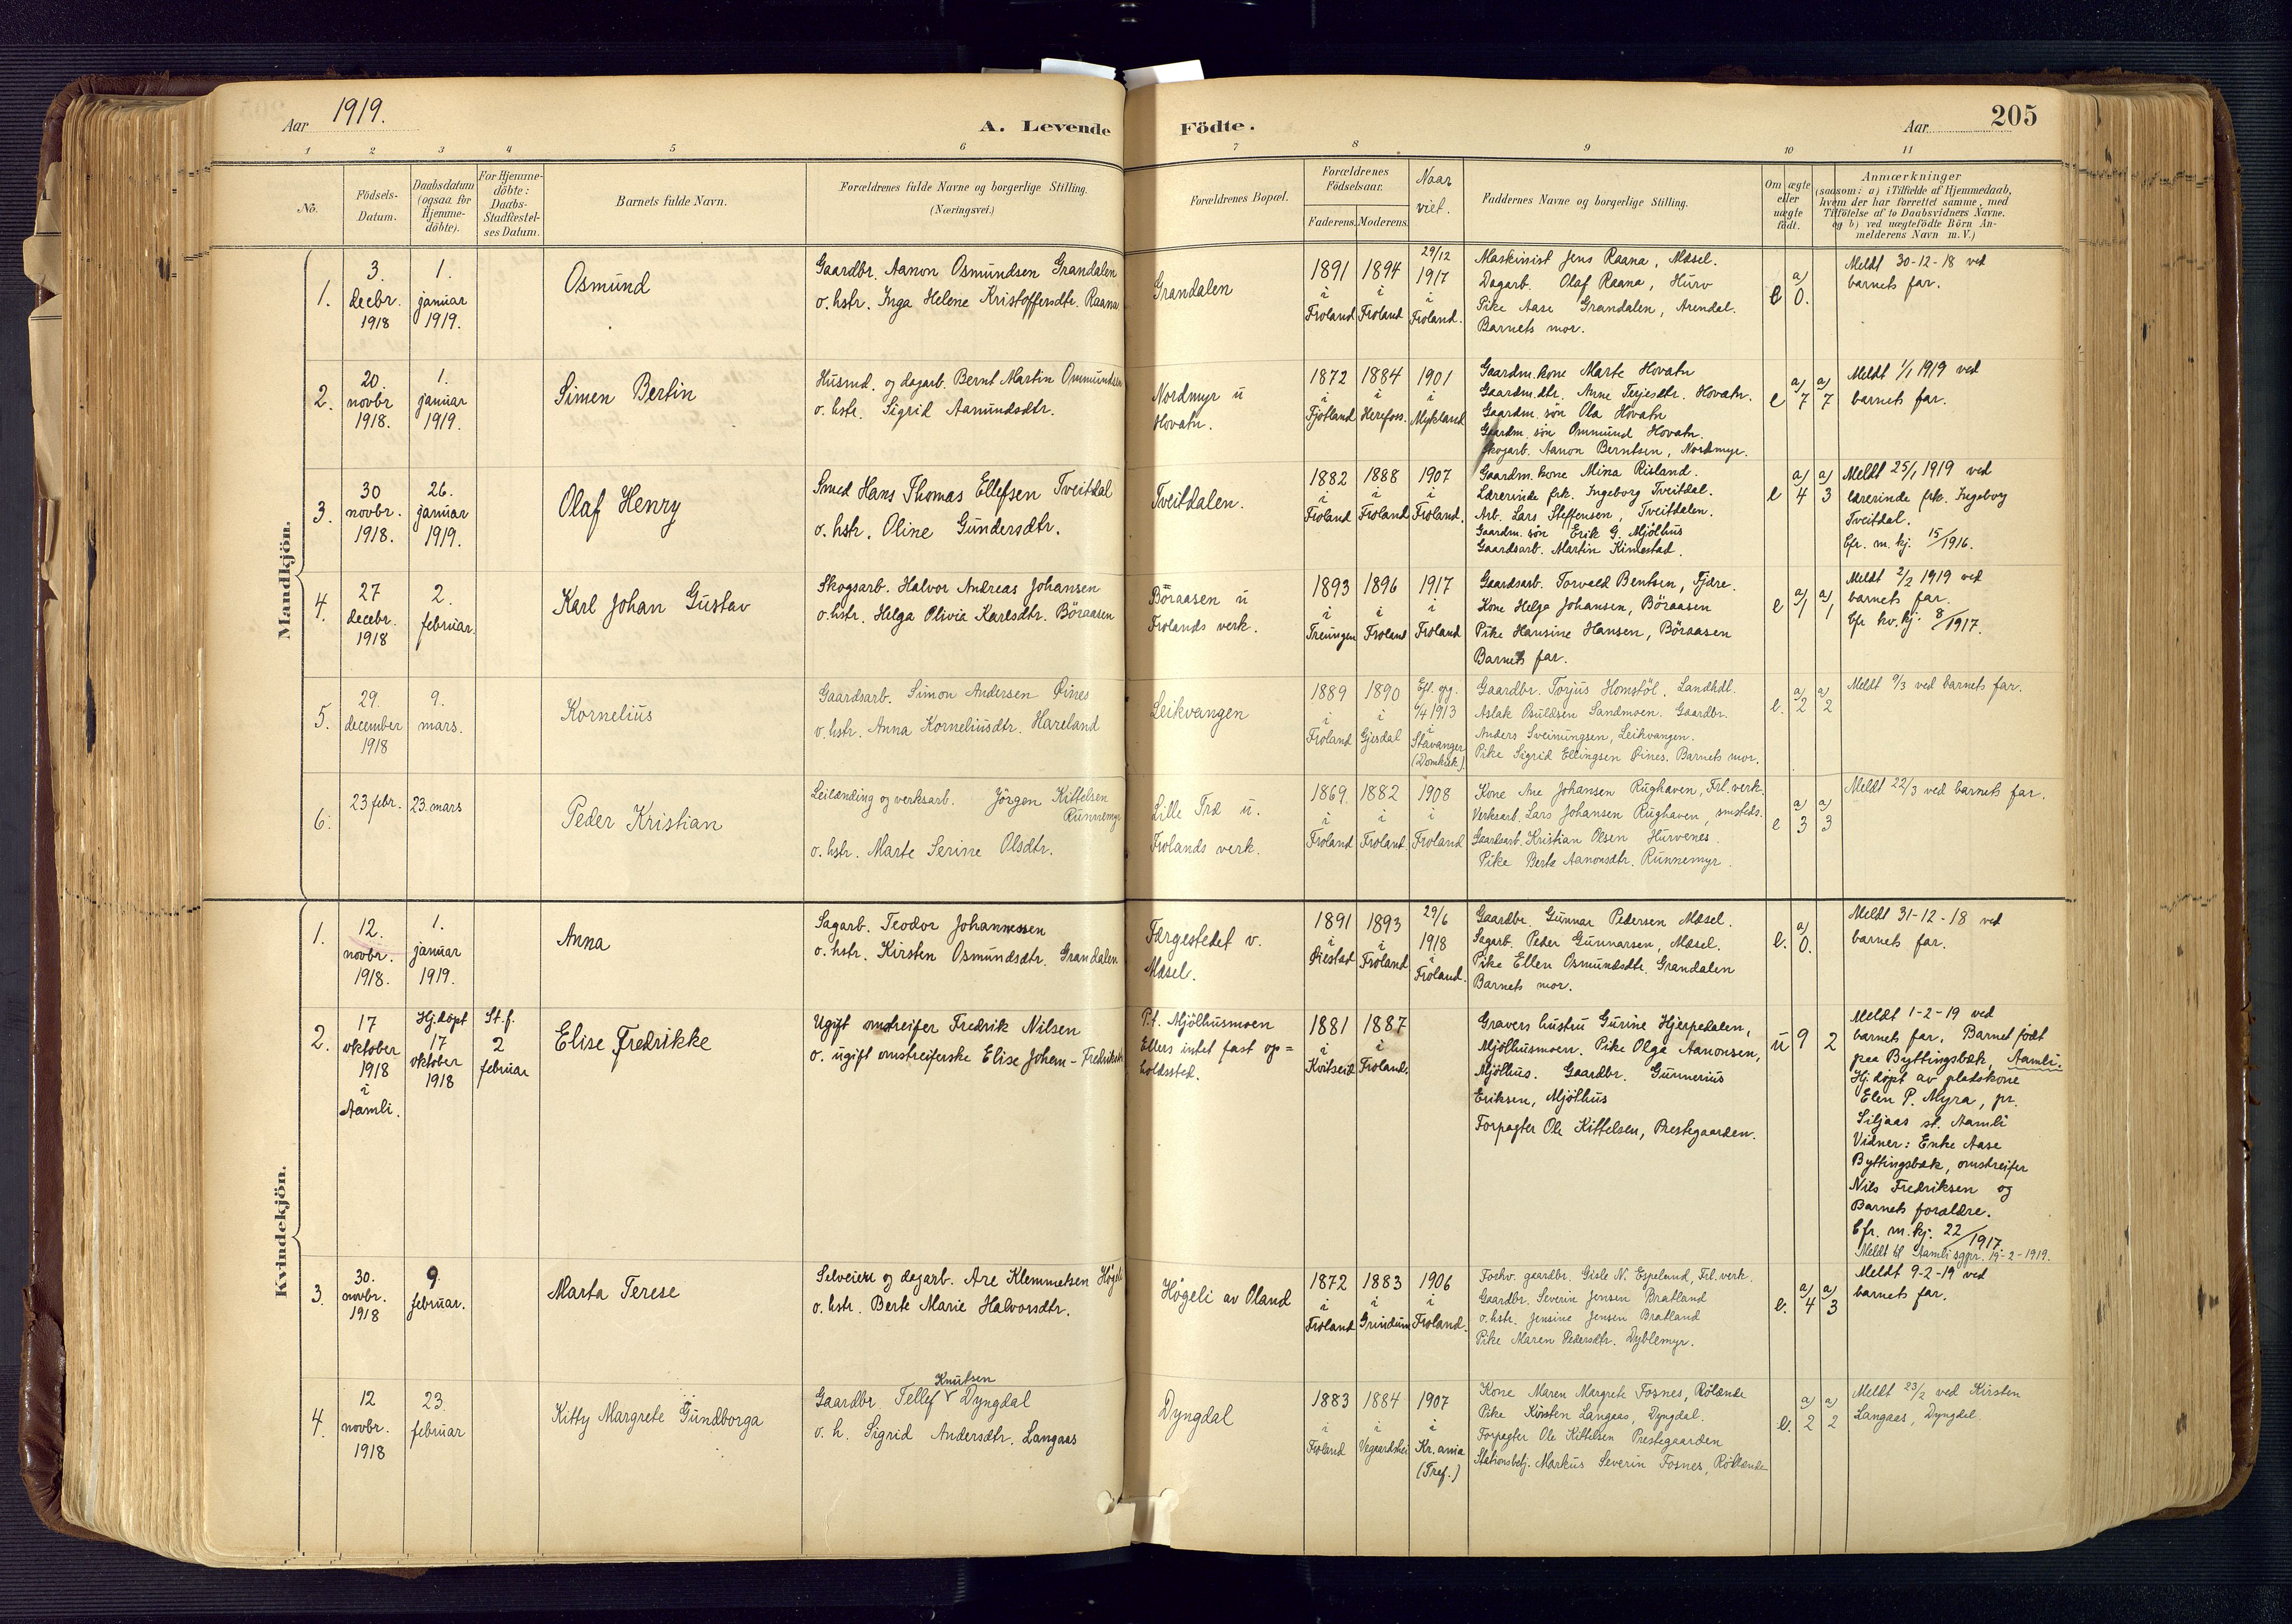 Aar 1919.
A. Levende Födte.
Aar 205
1 2 3 4 5 6 7 8 9 10 11
No.
Födsels-
Datum.
Daabsdatum
(ogsaa for
Hjemme-
döbte).
For Hjemme-
döbte:
Daabs-
Stadfæstel-
ses Datum.
Barnets fulde Navn.
Forældrenes fulde Navne og borgerlige Stilling.
(Næringsvei.)
Forældrenes Bopæl.
Forældrenes
Födselsaar.
Faderens. Moderens.
Naar
viet.
Faddernes Navne og borgerlige Stilling.
Om ægte
eller
uægte
født.
Anmærkninger
(saasom: a) i Tilfælde af Hjemmedaab,
hvem der har forrettet samme, med
Tilföielse af to Daabsvidners Navne.
og b) ved uægtefödte Börn An-
melderens Navn m. V.)
Mandkjön.
1.
3.
decbr.
1918
1.
januar
1919.
Osmund
Gaardbr. Aanon Osmundsen Grandalen
o. hstr. Inga Helene Kristoffersdtr. Raana
Grandalen
1891
i
Froland
1894
i
Froland
29/12
1917
i
Froland.
Maskinist Jens Raana, Mæsel.
Dagarb. Olaf Raana, Hurv
Pike Aase Grandalen, Arendal.
Barnets mor.
e
a)
0.
Meldt 30-12-18 ved
barnets far.
2.
20
novbr
1918.
1.
januar
1919.
Simen Bertin
Husmd. og dagarb. Bernt Martin Ommundsen
o. hstr. Sigrid Aanundsdtr.
Nordmyr u
Hovatn.
1872
i
Fjotland
1884
i
Herefoss.
1901
i
Mykland
Gaardm. kone Marte Hovatn
Gaardm. dtr. Anne Terjesdtr. Hovatn.
Gaardm. søn Ola Hovatn
Gaardm. søn Ommund Hovatn.
Skogarb. Aanon Berntsen, Nordmyr.
e
a) a)
7 7
Meldt 1/1 1919 ved
barnets far.
3.
30
novbr.
1918.
26.
januar
1919.
Olaf Henry
Smed Hans Thomas Ellefsen Tveitdal
o. hstr. Oline Gundersdtr.
Tveitdalen.
1882
i
Froland
1888
i
Froland
1907
i
Froland.
Gaardm. kone Mina Risland.
Lærerinde frk. Ingeborg Tveitdal.
Arb. Lars Steffensen, Tveitdalen.
Gaardm. søn Erik G. Mjölhus
Gaardsarb. Martin Kinestad.
e
a) a)
4 3
Meldt 25/1 1919 ved
lærerinde frk. Ingeborg
Tveitdal.
Cfr. m. kj. 15/1916.
4.
27
decebr.
1918
2.
februar.
Karl Johan Gustav
Skogsarb. Halvor Andreas Johansen
o. hstr. Helga Olivia Karlsdtr. Böraasen
Böraasen u
Frolands verk.
1893
i
Treungen
1896
i
Froland
1917
i
Froland
Gaardsarb. Torvald Bentsen, Fjære.
Kone Helga Johansen, Böraasen
Pike Hansine Hansen, Böraasen
Barnets far.
e
a) a)
1 1
Meldt 2/2 1919 ved
barnets far.
Cfr kv. kj. 8/1917.
5.
29.
december
1918
9.
mars.
Kornelius
Gaardsarb. Simon Andersen Øines
o. hstr. Anna Korneliusdtr. Hareland
Leikvangen
1889
i
Froland
1890
i
Gjesdal
Efl. opg.
1/4 1913
i
Stavanger
(Domkirk.)
Gaardbr. Torjus Homstöl. Landhdl.
Aslak Osuldsen Sandmoen. Gaardbr.
Anders Sveinungsen, Leikvangen.
Pike Sigrid Ellingsen Øines. Barnets mor.
e.
a) a)
2 2
Meldt 9/3 ved barnets far.
6.
23 febr.
23. mars
Peder Kristian
Leilænding og verksarb. Jörgen Kittelsen
Runnemyr
o. hstr. Marte Serine Olsdtr.
Lille Træ u.
Frolands verk.
1869.
i
Froland
1882
i
Froland.
1908
i
Froland
Kone Are Johansen Rughaven, Frl. verk.
Verksarb. Lars Johansen Rughaven, smsteds.
Gaardsarb. Kristian Olsen Hurvenes.
Pike Berte Aanonsdtr. Runnemyr.
e
a) a)
3 3
Meldt 22/3 ved barnets far.
Kvindekjön.
1.
12.
novbr.
1918.
1.
januar
1919.
Anna
Sagarb. Teodor Johannessen
o. hstr. Kirsten Osmundsdtr. Grandalen
Færgestedet v.
Mæsel.
1891
i
Øiestad
1893
i
Froland
29/6
1918
i
Froland.
Gaardbr. Gunnar Pedersen Mæsel.
Sagarb. Peder Gunnarsen, Mæsel.
Pike Ellen Osmundsdtr. Grandalen
Barnets mor.
e.
a)
0.
Meldt 31-12-18 ved
barnets far.
2.
17
oktober
1918
i
Aamli.
Hj. døpt
17
oktober
1918
St. f.
2
februar
Elise Fredrikke
Ugift omstreifer Fredrik Nilsen
o. ugift omstreiferske Elise Johan-Fredriksdtr
P.t. Mjölhusmoen
Ellers intet fast op=
holdssted.
1881
i
Kvitseid
1887
i
Froland.
Gravers hustru Gurine Hjerpedalen,
Mjölhusmoen. Pike Olga Aanonsen,
Mjölhus. Gaardbr. Gunnerius
Eriksen, Mjölhus
Forpagter Ole Kittelsen, Prestegaarden.
u 9 2
Meldt 1-2-19 ved
barnets far. Barnet født
paa Byttingsbæk, Aamli.
Hj. døpt av pladskone
Elen P. Myra, pr.
Siljaas st. Aamli
Vidner: Enke Aase
Byttingsbæk, omstreifer
Nils Fredriksen og
Barnets forældre.
Cfr. m. kj. 22/1917.
Meldt til Aamli sgpr. 19-2-1919.
3.
30.
novbr.
1918
9.
februar.
Marta Terese
Selveier og dagarb. Are Klemmetsen Högeli
o. hstr. Berte Marie Halvorsdtr.
Högeli av Oland
1872
i
Froland
1883
i
Grindum
1906
i
Froland.
Forhv. gaardbr. Gisle N. Espeland, Frl. verk.
Gaardbr. Severin Jensen Bratland
o. hstr. Jensine Jensen Bratland
Pike Maren Pedersdtr. Dyblemyr.
e.
a) a)
4 3
Meldt 9-2-19 ved
barnets far.
4.
12
novbr.
1918
23.
februar
Kitty Margrete Gundborga
Knutsen
Gaardbr Tellef Dyngdal
o. h. Sigrid Andersdtr. Langaas
Dyngdal
1883
i
Froland
1884
i
Vegaardshei
1907
i
Kr.ania
(Tref.)
Kone Maren Margrete Fosnes, Rölande
Pike Kirsten Langaas, Dyngdal.
Forpagter Ole Kittelsen Prestegaarden
Stationsbetj. Markus Severin Fosnes, Röllende
e.
a) a)
2 2
Meldt 23/2 ved Kirsten
Langaas, Dyngdal.